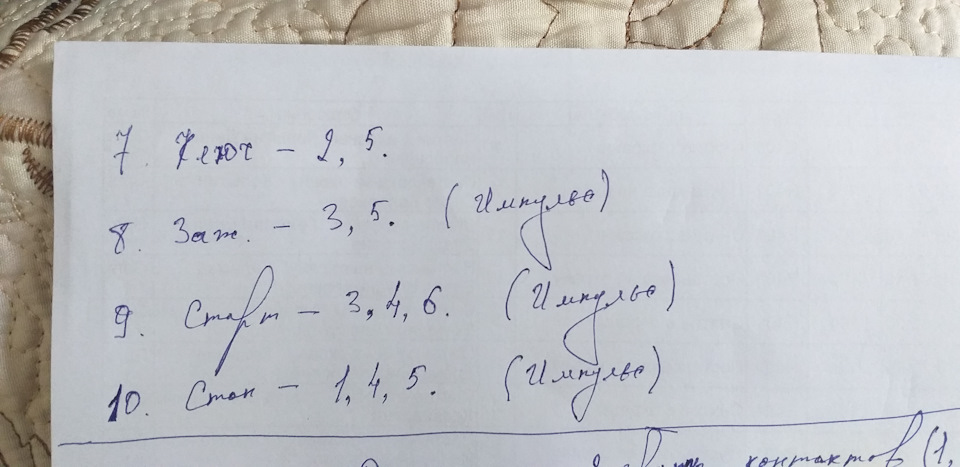 7. Ключ – 2, 5.
8. Заж. – 3, 5. (Импульс)
9. Старт – 3, 4, 6. (Импульс)
10. Стоп – 1, 4, 5. (Импульс)
контактов (1,